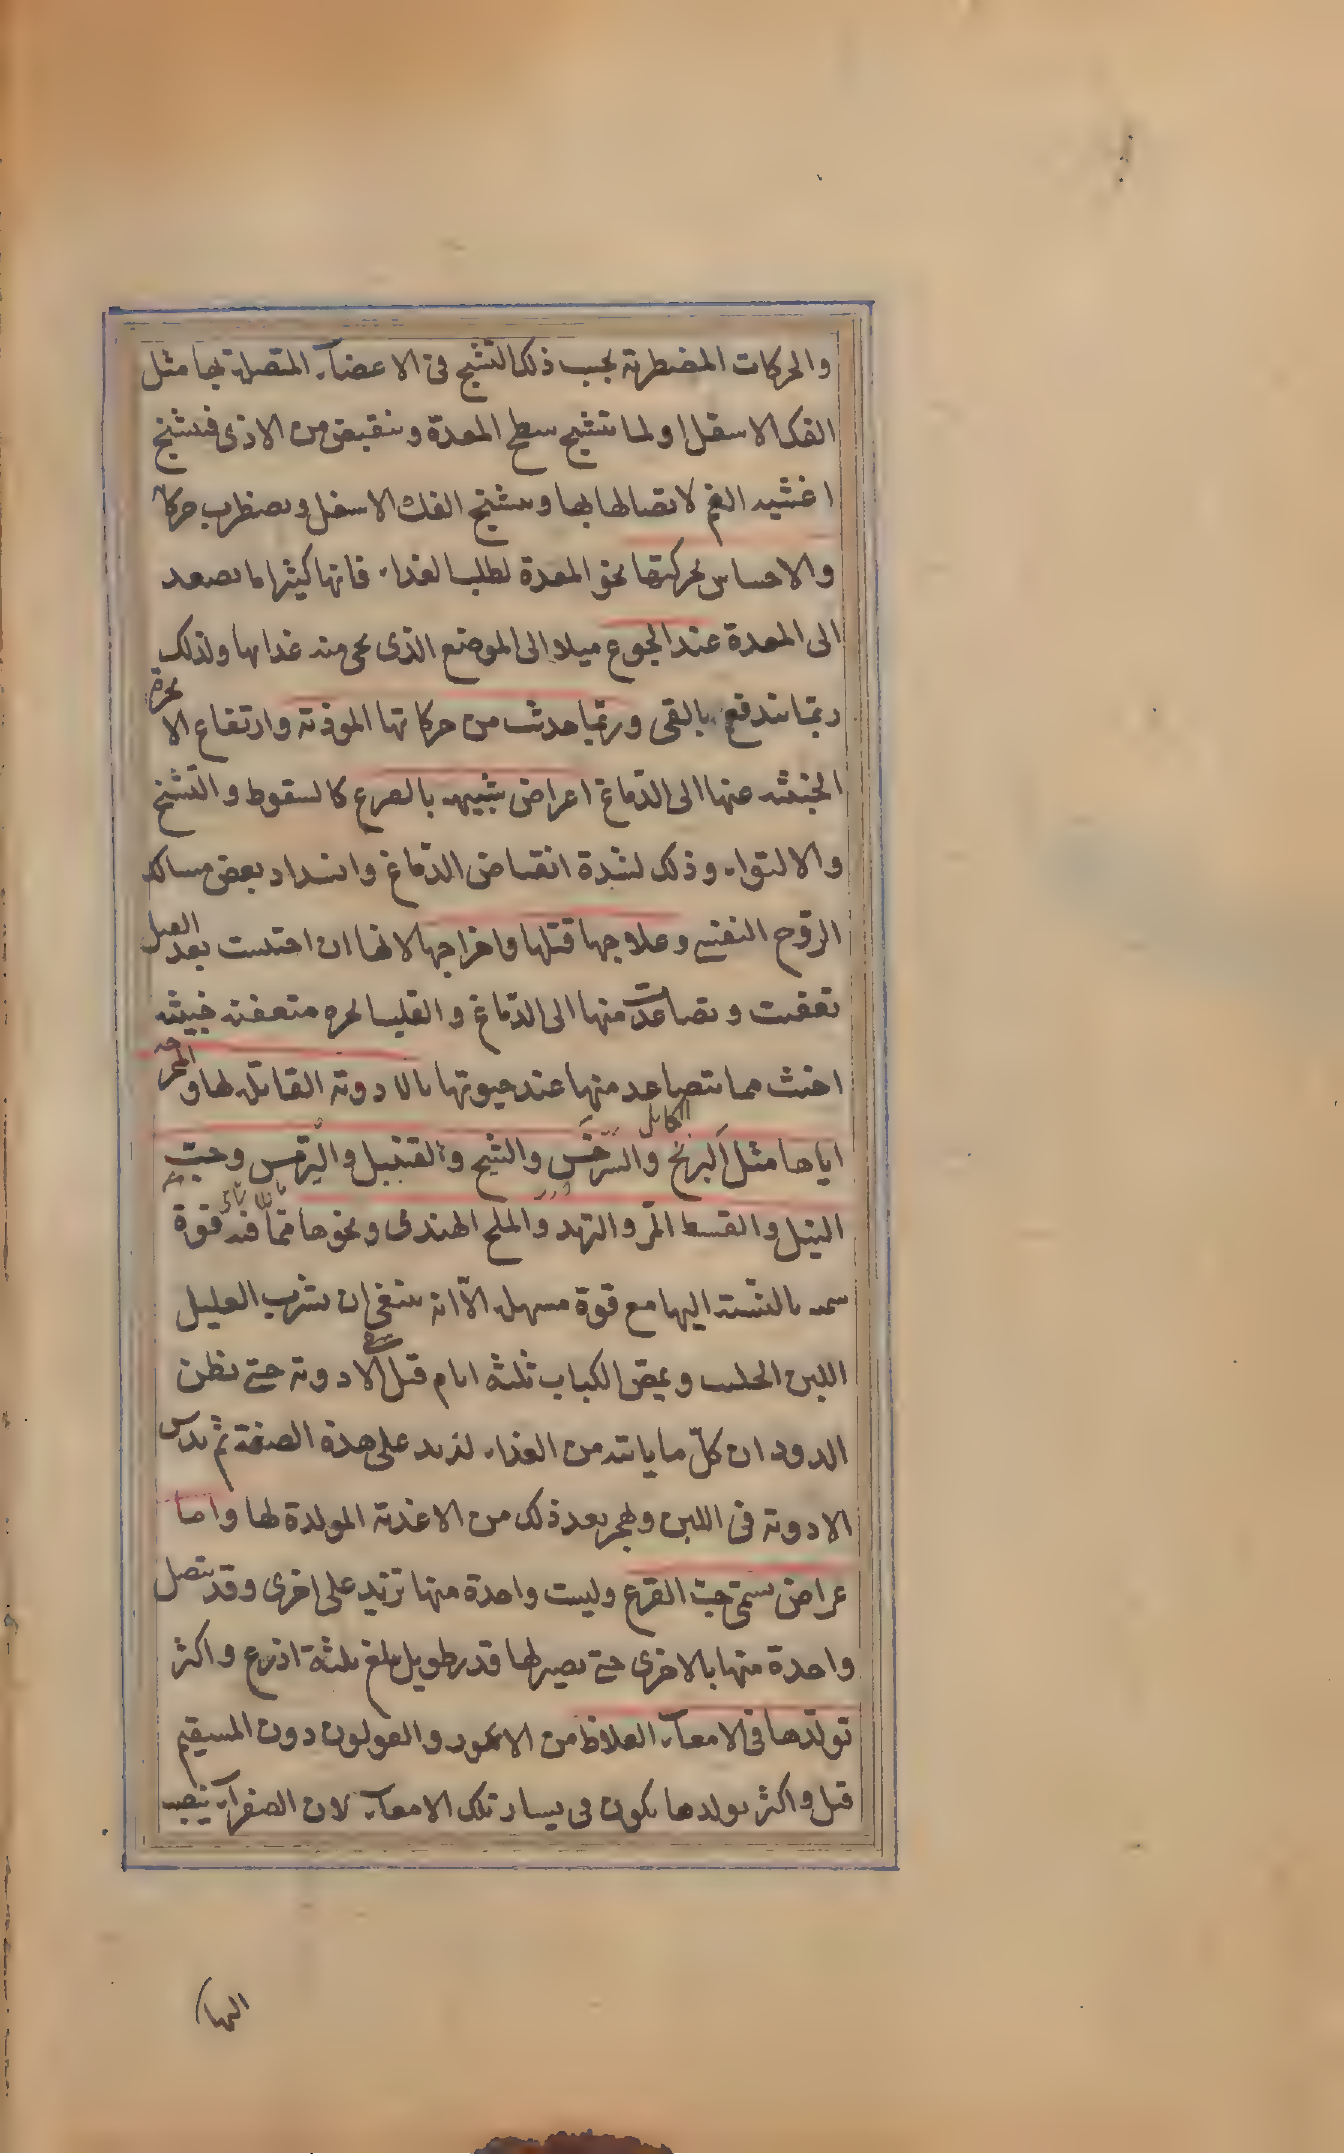 والحركات المضطربة بحسب ذلك التشنج فى الاعضاء المتصلة بها مثل
الفك الاسفل او لما تتشنج سطح المعدة وينقبض من الاذى فيتشنج
اغشيه الفم لاتصالها بها ويتشنج الفك الاسفل ويضطرب حركا
والاحساس بحركتها نحو المعدة لطلب الغذاء فانها كثيرا ما تصعد
الى المعدة عند الجوع ميلا الى الموضع الذى يجى منه غداها ولذلك
ربما تندفع بالقى وربما حدث من حركاتها الموذية وارتفاع الابخرة
الخبيثه عنها الى الدماغ اعراض شبيهه بالصرع كالسقوط والتشنج
والالتواء وذلك لشدة انقباض الدماغ وانسداد بعض مسالك
الروح النفسى وعلاجها قتلها واخراجها لانها ان احتبست بعد القتل
تعفنت وتصاعدت منها الى الدماغ والقلب ابخره متعفنه خبيثه
اخبث مما يتصاعد منها عند حيوتها بالادوية القاتله لها والمخرجه
اياها مثل البرنج الكابلى والسرخس والشيح والقنبيل والترمس وحب
النيل والقسط المر والتربد والملح الهندى ونحوها مما فيه قوة
سميه بالنسبة اليها مع قوة مسهله الا انه ينبغى ان يشرب العليل
اللبن الحليب ويمص الكباب ثلثه ايام قبل شرب الادوية حتى يظن
الدود ان كل ما ياتيه من الغذاء لذيذ على هذة الصفة ثم يدس
الادوية فى اللبن ويهجر بعد ذلك من الاغذية المولدة لها واما
عراض يسمى حب القرع وليست واحدة منها تزيد على اخرى وقد يتصل
واحدة منها بالاخرى حتى يصير لها قدر طويل يبلغ ثلثة اذرع واكثر
تولدها فى الامعاء الغلاظ من الاعور والقولون دون المستقيم
قيل واكثر تولدها يكون فى يسار تلك الامعاء لان الصفراء ينصب
اليها